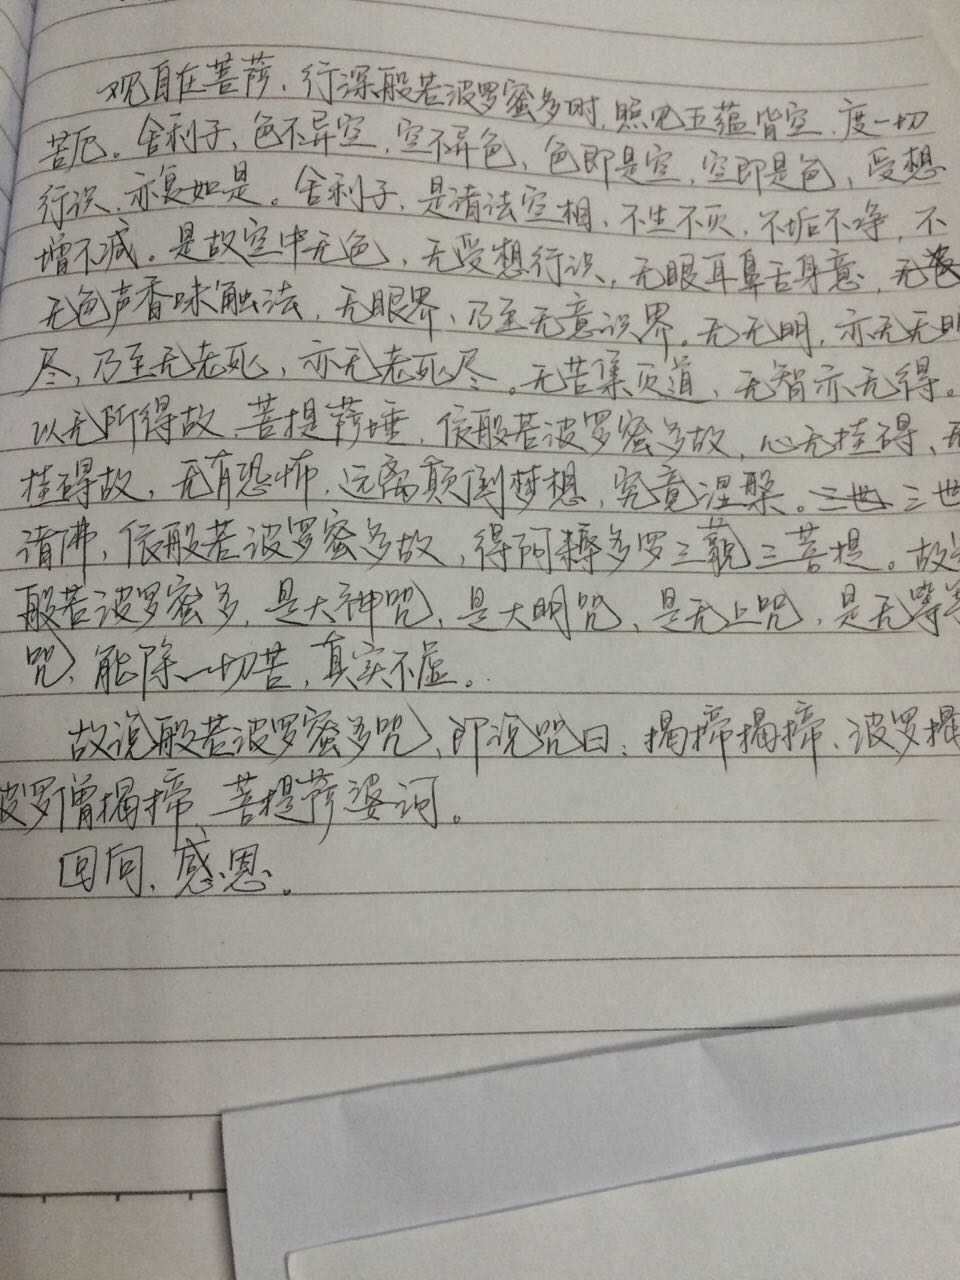 观自在菩萨，行深般若波罗蜜多时，照见五蕴皆空，度一切
苦厄。舍利子，色不异空，空不异色，色即是空，空即是色，受想
行识，亦复如是。舍利子，是诸法空相，不生不灭，不垢不净，不
增不减。是故空中无色，无受想行识，无眼耳鼻舌身意，无
无色声香味触法，无眼界、乃至无意识界。无无明，亦无无明
尽，乃至无老死，亦无老死尽。无苦集灭道，无智亦无得。
以无所得故，菩提萨埵，依般若波罗蜜多故，心无挂碍，无
挂碍故，无有恐怖，远离颠倒梦想，究竟涅槃。三世 三世
诸佛，依般若波罗蜜多故，得阿耨多罗三藐三菩提。故
般若波罗蜜多，是大神咒，是大明咒，是无上咒，是无等等
咒，能除一切苦，真实不虚。
故说般若波罗蜜多咒，即说咒曰：揭揥揭揥、波罗揭
波罗僧揭揥，菩提萨婆诃。
回向、感恩。